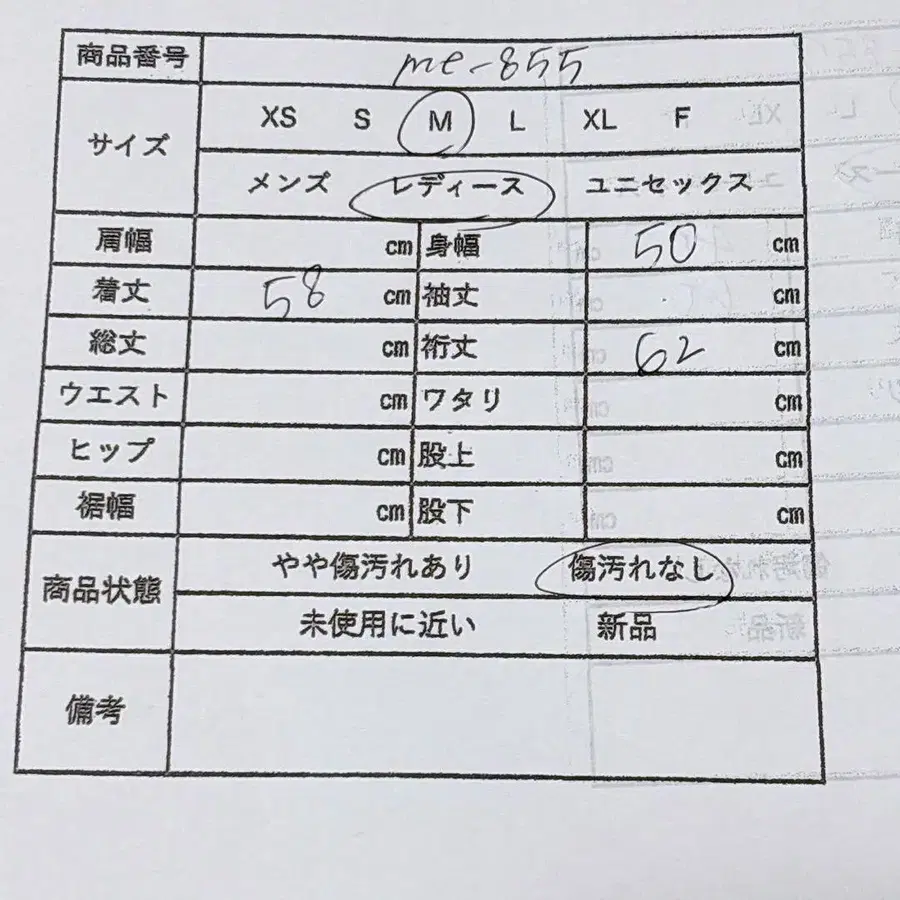 商品番号 me-855
サイズ XS S M L XL F
メンズ レディース ユニセックス
肩幅 cm 身幅 50 cm
着丈 58 cm 袖丈 cm
総丈 cm 裄丈 62 cm
ウエスト cm ワタリ cm
ヒップ cm 股上 cm
裾幅 cm 股下 cm
商品状態 やや傷汚れあり 傷汚れなし
未使用に近い 新品
備考